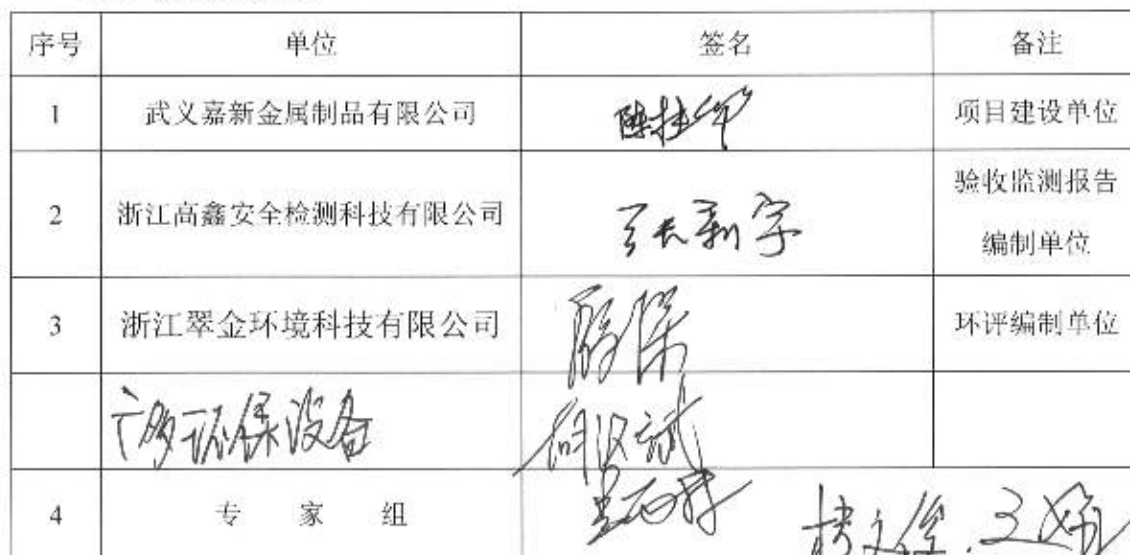 序号 单位 签名 备注
1 武义嘉新金属制品有限公司 项目建设单位
2 浙江高鑫安全检测科技有限公司 张新宇 验收监测报告
编制单位
3 浙江翠金环境科技有限公司 环评编制单位
环保设备
4 专 家 组